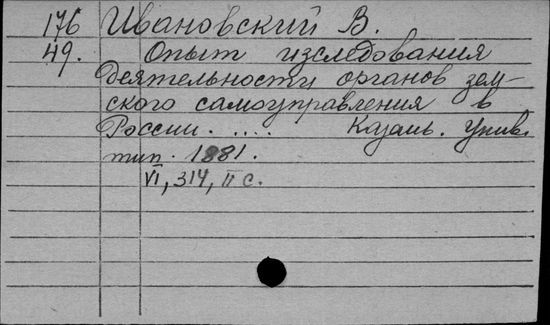 176 Ивановский В.
49. Опыт изследования
деятельности органов зем-
ского самоуправления в
России. .... Казань. Унив.
тип. 1881.
VI, 314, II с.